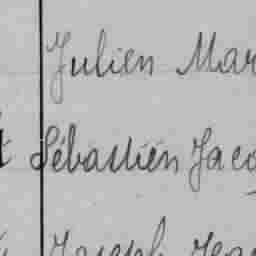 Julien Mar
Sébastien Jaco
Joseph Jean